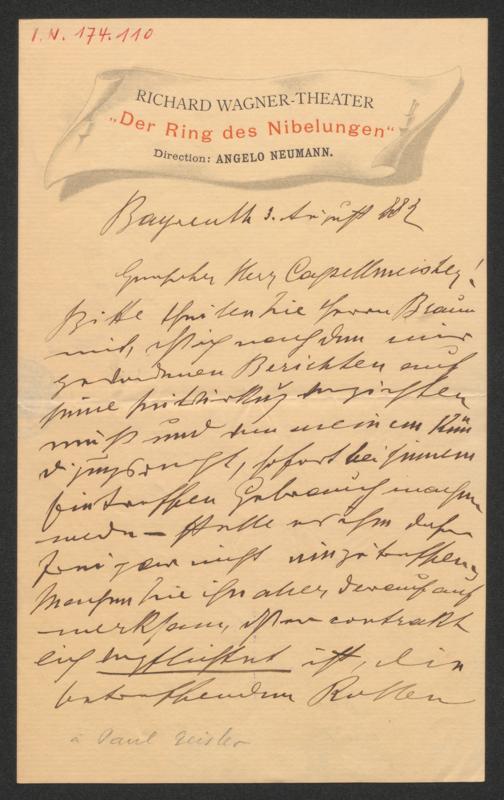 I.N. 174.110
RICHARD WAGNER-THEATER
„Der Ring des Nibelungen“
Direction: ANGELO NEUMANN.
Bayreuth 3. August 882
Herr Capellmeister!
Bitte theilen Sie Herrn Braun
mit, daß ich nach den mir
gewordenen Berichten auf
seine Mitwirkung verzichten
muß und von meinem Kün
digungsrecht, sofort bei seinem
Eintreffen Gebrauch machen
werde – stelle es ihm daher
frei gar nicht einzutreffen,
Machen Sie ihn aber darauf auf
merksam, daß er contrakt
lich verpflichtet ist, die
betreffenden Rollen
a Paul Geisler